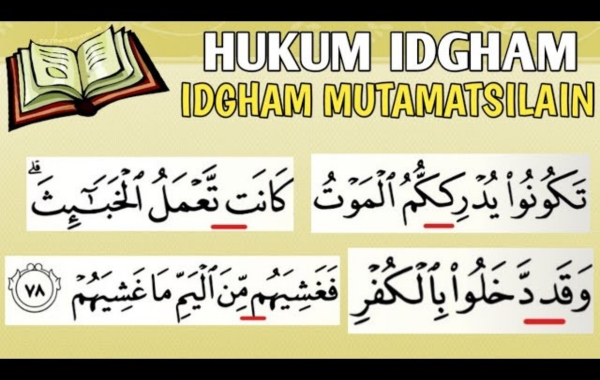 HUKUM IDGHAM
IDGHAM MUTAMATSILAIN
تَكُونُوا۟ يُدْرِككُّمُ ٱلْمَوْتُ
كَانَت تَّعْمَلُ ٱلْخَبَـٰٓئِثَ ۗ
وَقَد دَّخَلُوا۟ بِٱلْكُفْرِ
فَغَشِيَهُم مِّنَ ٱلْيَمِّ مَا غَشِيَهُمْ ٧٨